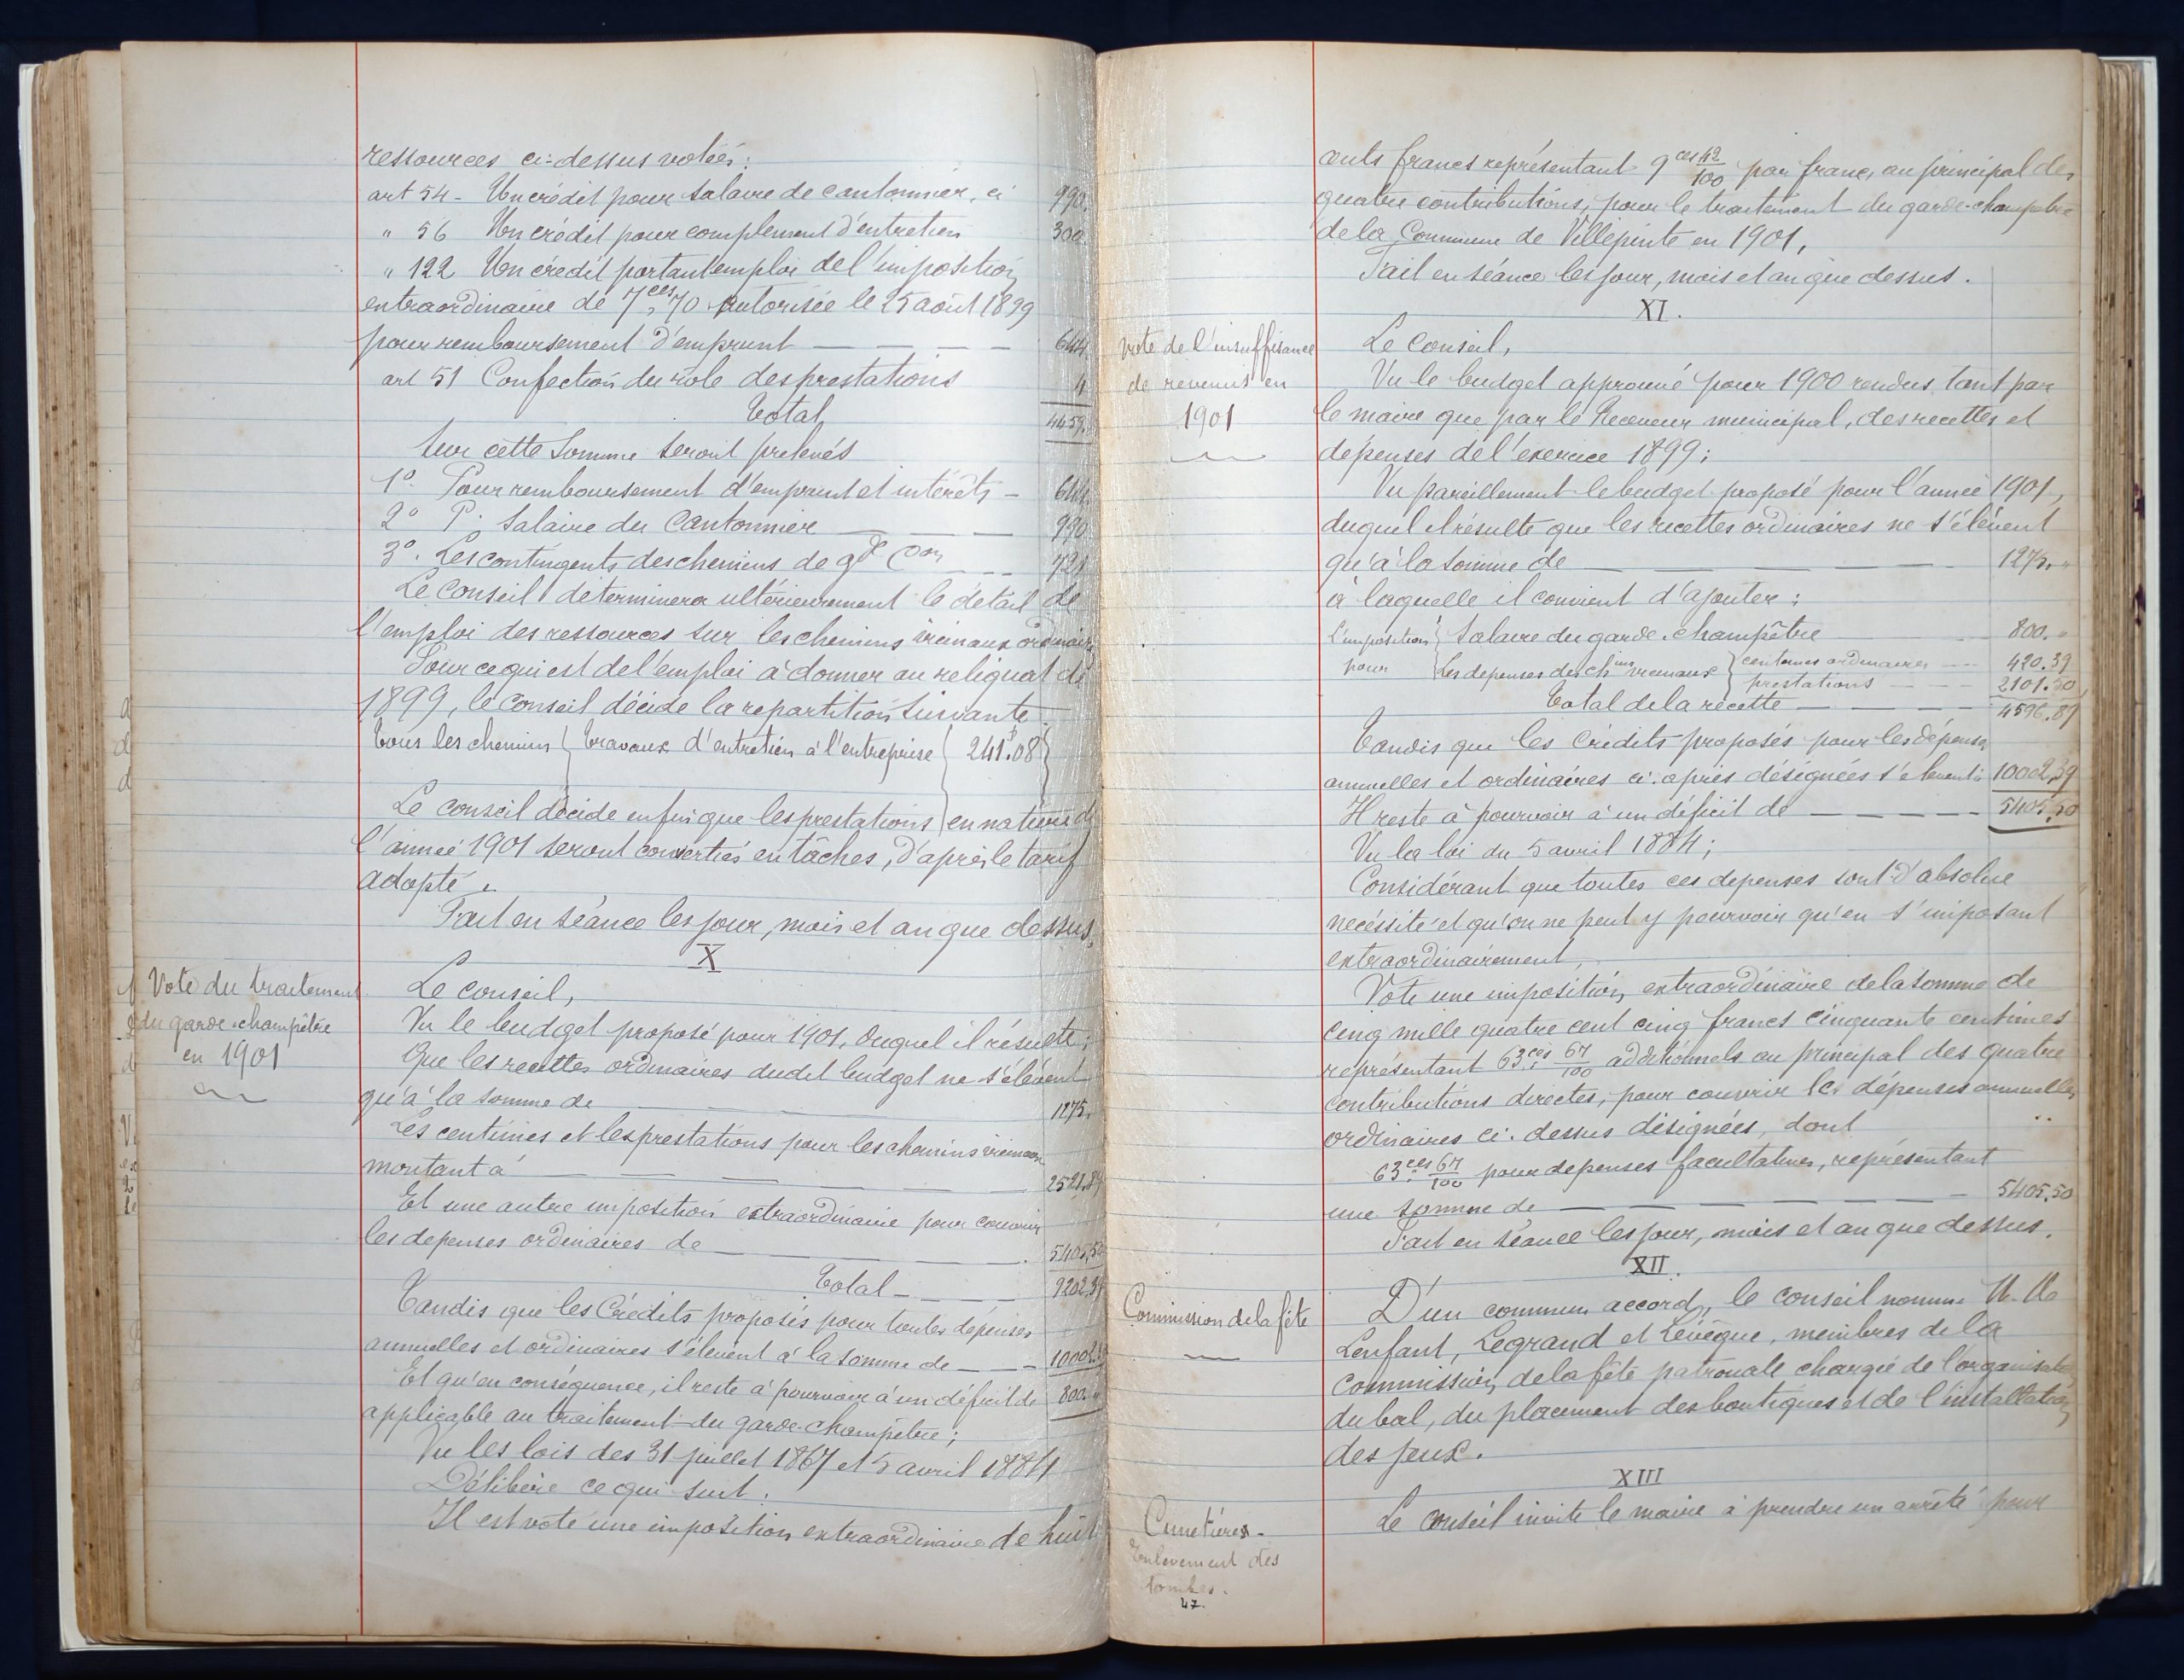 ressources ci-dessus votées:
art 54 - Un crédit pour salaire de cantonnier, ci 990.
" 56 Un crédit pour complement d'entretien 300
" 122 Un crédit portant emploi de l'imposition
extraordinaire de 7ces,70 autorisée le 25 août 1899
pour remboursement d'emprunt — — — — 644
art 51 Confection du rôle des prestations 4
Total 4459.
Sur cette somme seront prelevés
1° Pour remboursement d'emprunt et intérêts - 644
2° P. salaire du Cantonnier — — — 990
3°. Les contingents des chemins de gde Con — — 721
Le Conseil déterminera ultérieurement le détail de
l'emploi des ressources sur les chemins vicinaux ordinaires
Pour ce qui est de l'emploi à donner au reliquat de
1899, le Conseil décide la repartition suivante
Tous les chemins { travaux d'entretien à l'entreprise { 241f.08 }
Le conseil décide enfin que les prestations en nature de
l'année 1901 seront converties en tâches, d'après le tarif
adopté.
Fait en séance les jour, mois et an que dessus.
X
Vote du traitement
du garde-champêtre
en 1901
Le conseil,
Vu le budget proposé pour 1901, duquel il résulte:
Que les recettes ordinaires dudit budget ne s'élèvent
qu'à la somme de — — 1275.
Les centimes et les prestations pour les chemins vicinaux
montant à — — — — — 2521.89
Et une autre imposition extraordinaire pour couvrir
les depenses ordinaires de — — — 5405,50
Total — — — 9202,39
Tandis que les Crédits proposés pour toutes dépenses
annuelles et ordinaires s'élèvent à la somme de — — 10002.39
Et qu'en conséquence, il reste à pourvoir à un déficit de 800. "
applicable au traitement du garde-champêtre;
Vu les lois des 31 juillet 1867 et 5 avril 1884
Délibère ce qui suit:
Il est voté une imposition extraordinaire de huit
cents francs représentant 9ces 42/100 par franc, au principal des
quatre contributions, pour le traitement du garde-champêtre
de la Commune de Villepinte en 1901,
Fait en séance les jour, mois et an que dessus.
XI.
Vote de l'insuffisance
de revenus en
1901
Le Conseil,
Vu le budget approuvé pour 1900 rendus tant par
le maire que par le Receveur municipal, des recettes et
dépenses de l'exercice 1899;
Vu pareillement le budget proposé pour l'année 1901,
duquel il résulte que les recettes ordinaires ne s'élèvent
qu'à la somme de — — — — 1275. "
à laquelle il convient d'ajouter:
L'imposition pour { Salaire du garde-champêtre — 800. "
{ Les depenses des chins vicinaux { centimes ordinaires — 420.39
{ prestations — — 2101.50
Total de la recette — — — — 4596.89
Tandis que les Crédits proposés pour les dépenses
annuelles et ordinaires ci-après désignées s'élèvent à 10002,39
Il reste à pourvoir à un déficit de — — — — 5405,50
Vu la loi du 5 avril 1884;
Considérant que toutes ces depenses sont d'absolue
necéssité et qu'on ne peut y pourvoir qu'en s'imposant
extraordinairement,
Vote une imposition extraordinaire de la somme de
cinq mille quatre cent cinq francs cinquante centimes
représentant 63ces 67/100 additionnels au principal des quatre
contributions directes, pour couvrir les dépenses annuelles
ordinaires ci-dessus désignées, dont
63ces 67/100 pour depenses facultatives, représentant
une somme de — — — — — 5405,50
Fait en séance les jour, mois et an que dessus.
XII.
Commission de la fête
D'un commun accord, le conseil nomme M.M.
Lenfant, Legrand et Lévêque, membres de la
Commission de la fête patronale chargée de l'organisation
du bal, du placement des boutiques et de l'installation
des jeux.
XIII
Cimetières -
Enlèvement des
tombes.
47.
Le conseil invite le maire à prendre un arrêté pour